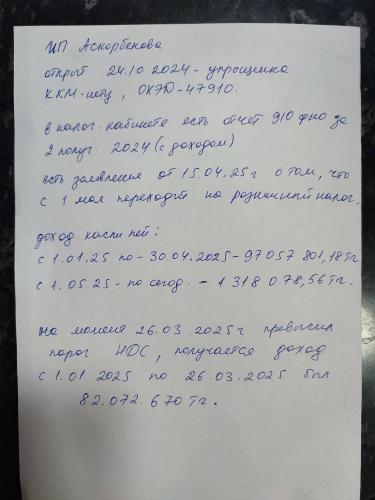 ИП Аскорбекова
открыт 24.10.2024 - упрощенка
ККМ-нету, ОКЭД-47910.
в налог. кабинете есть отчет 910 фно за
2 полуг. 2024 (с доходом)
есть заявление от 15.04.25г о том, что
с 1 мая переходит на розничный налог.
доход каспи пей:
с 1.01.25 по - 30.04.2025 - 97 057 801,18 тг.
с 1.05.25 - по сегод. - 1 318 078,56 тг.
на момент 26.03.2025г превысил
порог НДС, получается доход
с 1.01.2025 по 26.03.2025 был
82.072.670 тг.